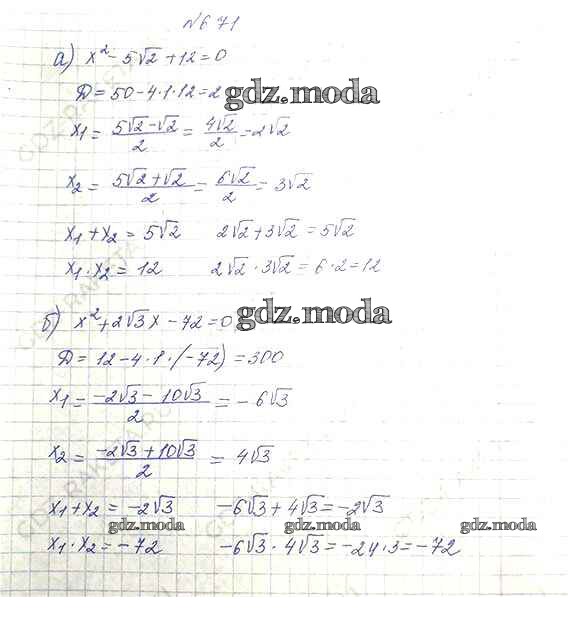 №671
а) x² - 5√2 + 12 = 0
D = 50 - 4·1·12 = 2
gdz.moda
x₁ = (5√2 - √2)/2 = 4√2/2 = 2√2
x₂ = (5√2 + √2)/2 = 6√2/2 = 3√2
x₁ + x₂ = 5√2 2√2 + 3√2 = 5√2
x₁ · x₂ = 12 2√2 · 3√2 = 6·2 = 12
б) x² + 2√3x - 72 = 0
gdz.moda
D = 12 - 4·1·(-72) = 300
x₁ = (-2√3 - 10√3)/2 = -6√3
x₂ = (-2√3 + 10√3)/2 = 4√3
x₁ + x₂ = -2√3 -6√3 + 4√3 = -2√3
gdz.moda gdz.moda gdz.moda
x₁ · x₂ = -72 -6√3 · 4√3 = -24·3 = -72